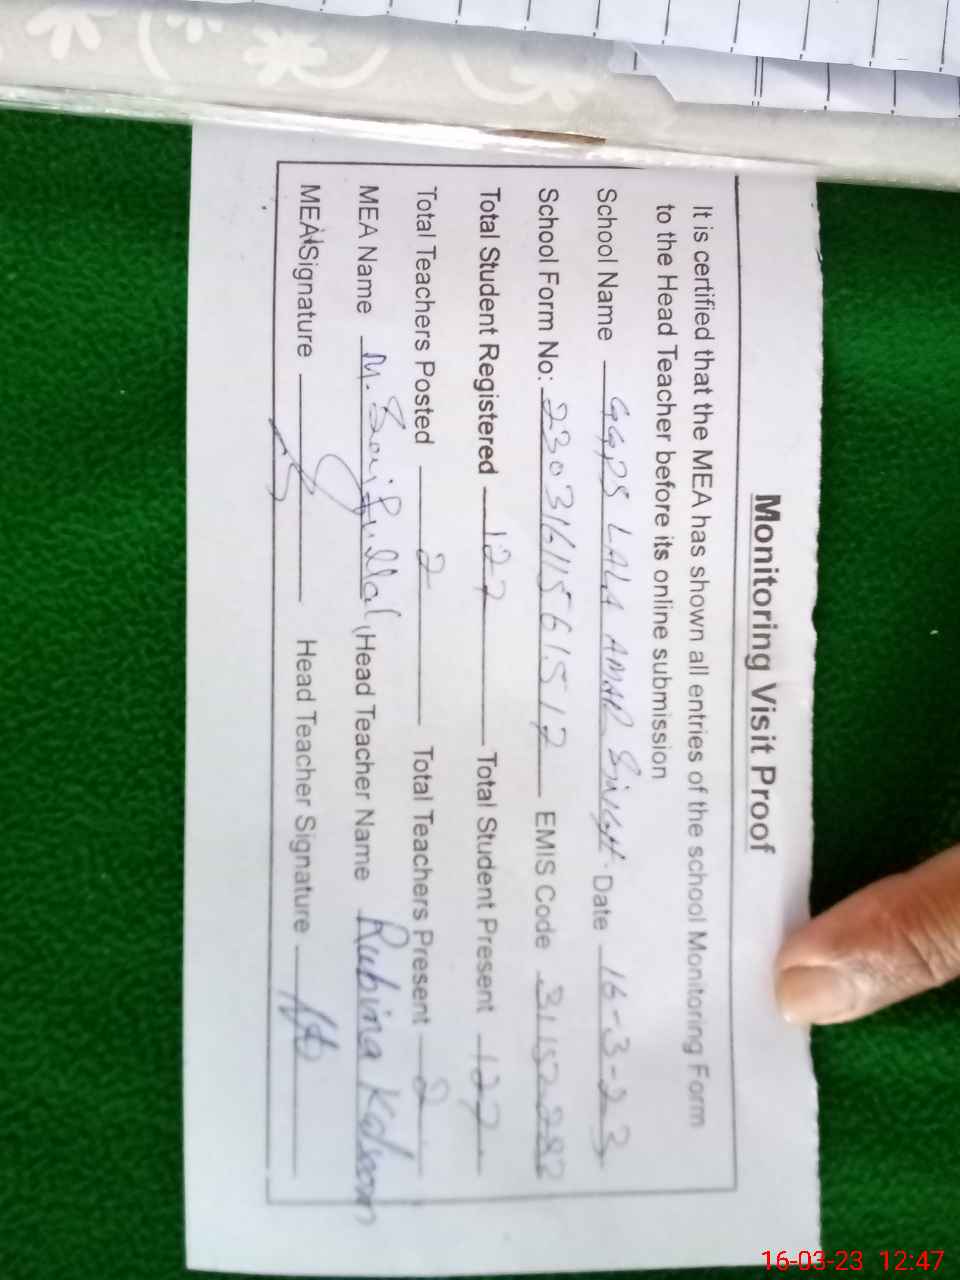 Monitoring Visit Proof
It is certified that the MEA has shown all entries of the school Monitoring Form
to the Head Teacher before its online submission
School Name GGPS LALA AMAR SINGH. Date 16-3-23
School Form No: 23031611561517 EMIS Code
Total Student Registered 127 Total Student Present 127
Total Teachers Posted 2 Total Teachers Present 2
MEA Name M. Head Teacher Name Rubina Kalsoom
MEA Signature Head Teacher Signature
16-03-23 12:47